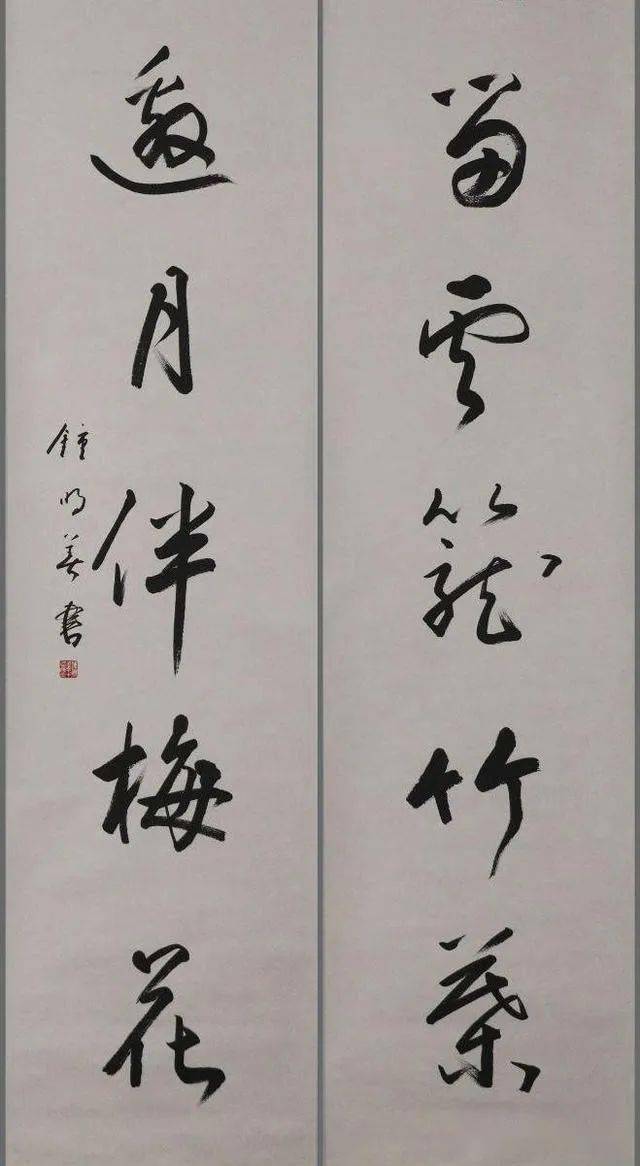 留雲籠竹葉
邀月伴梅花
鍾明善書